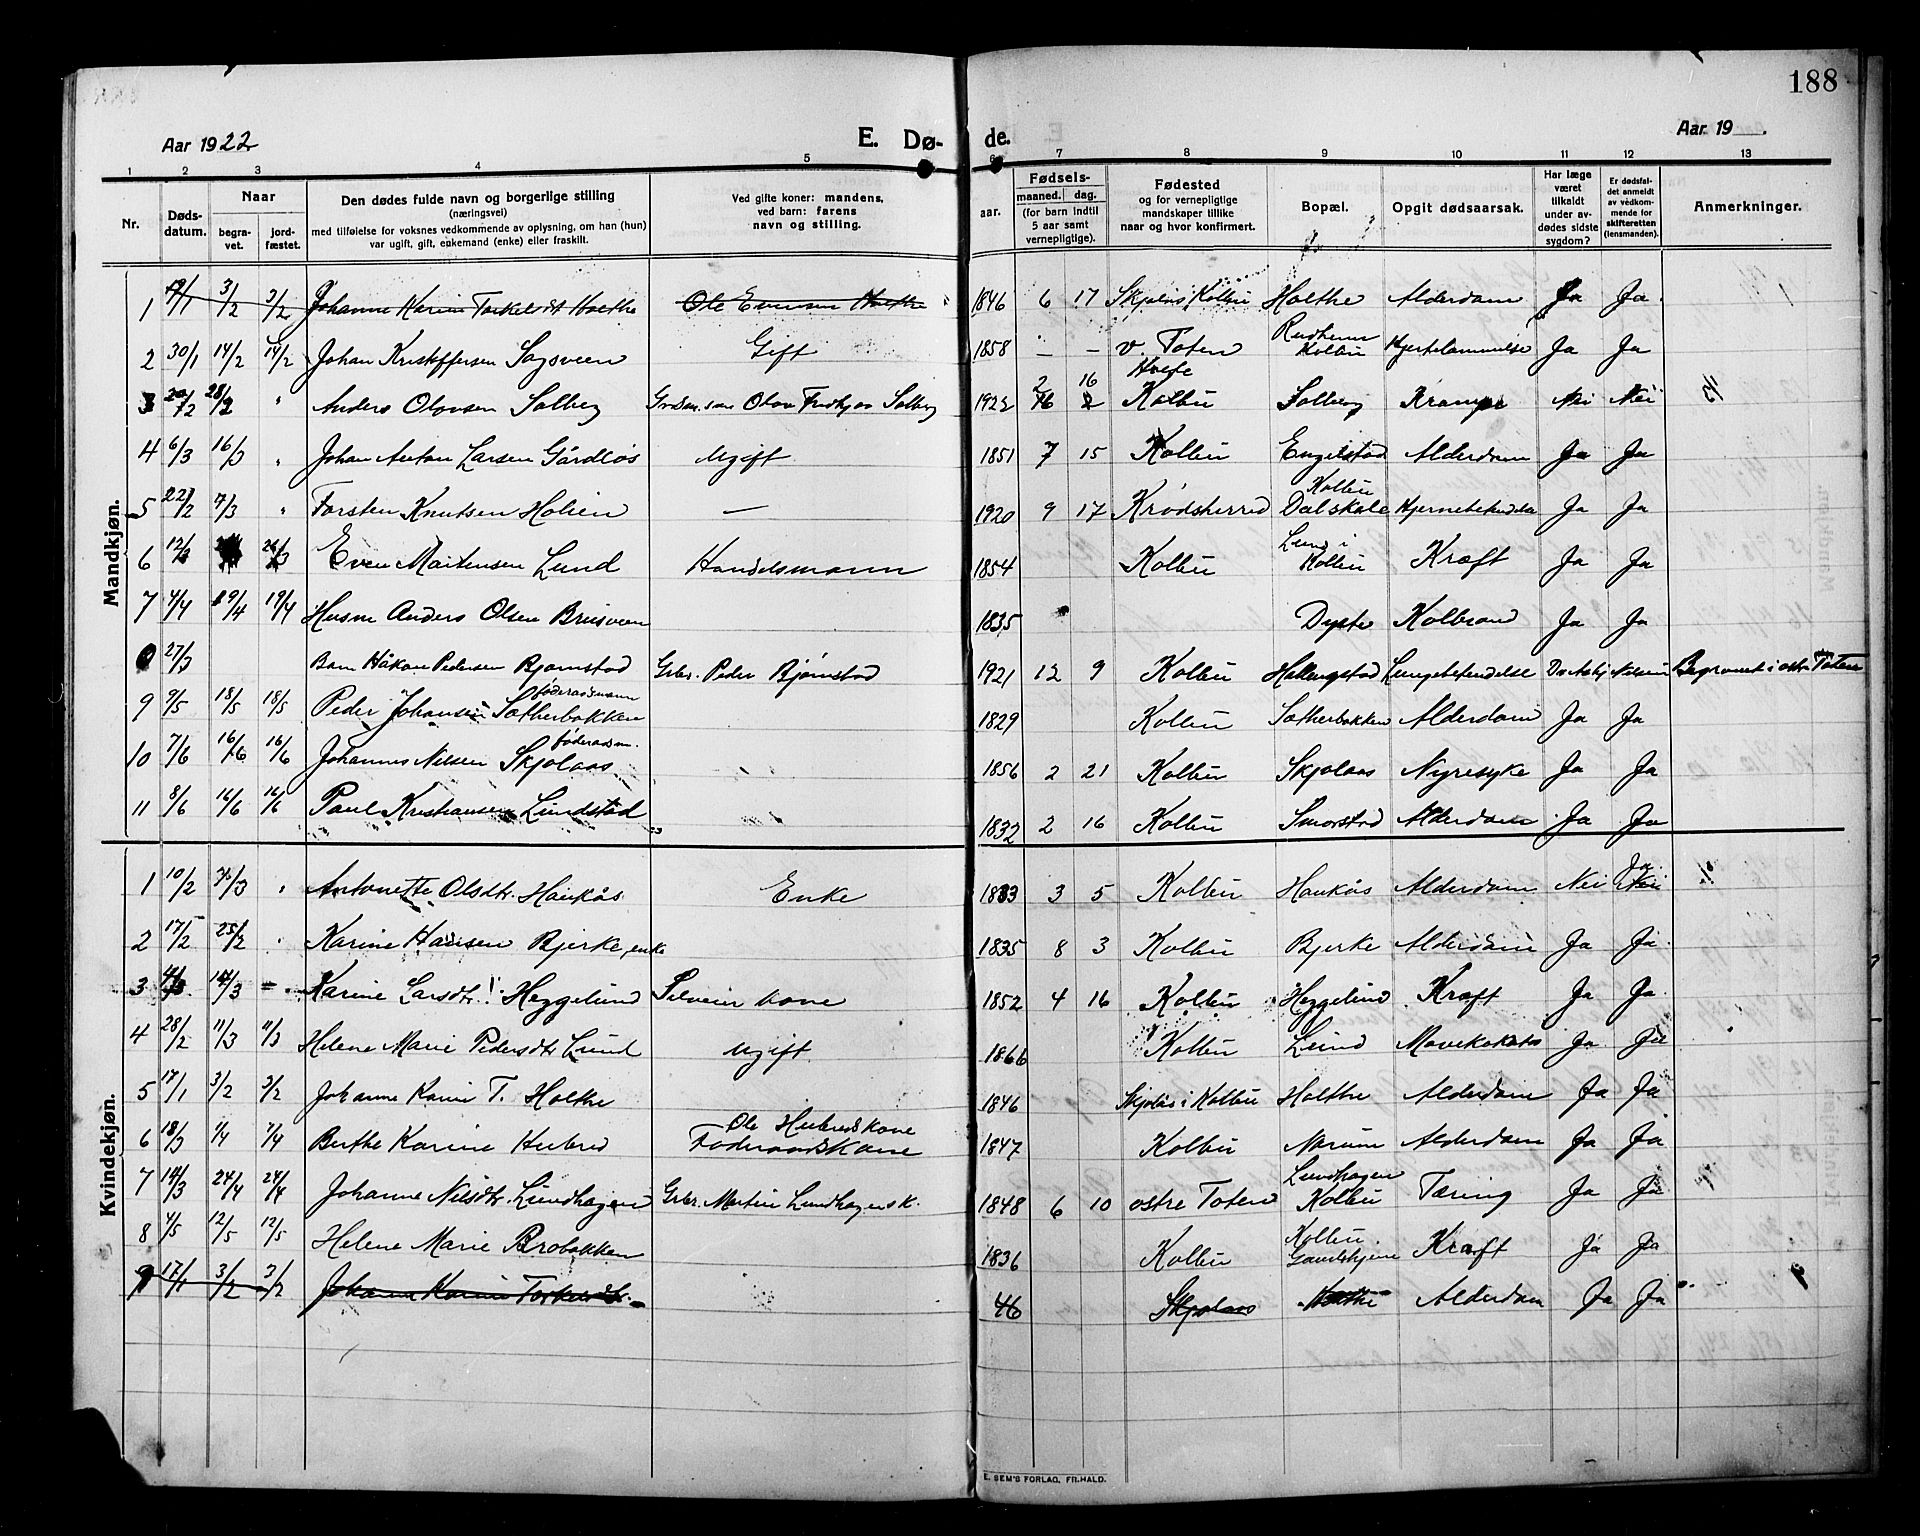 188
Aar 1922 E. Dø- de. Aar 19 .
1 2 3 4 5 6 7 8 9 10 11 12 13
Nr. Døds-datum. Naar begra-vet. jord-fæstet. Den dødes fulde navn og borgerlige stilling (næringsvei) med tilføielse for voksnes vedkommende av oplysning, om han (hun) var ugift, gift, enkemand (enke) eller fraskilt. Ved gifte koner: mandens, ved barn: farens navn og stilling. Fødsels- aar. maaned. dag. (for barn indtil 5 aar samt vernepligtige). Fødested og for vernepligtige mandskaper tillike naar og hvor konfirmert. Bopæl. Opgit dødsaarsak. Har læge været tilkaldt under av-dødes sidste sygdom? Er dødsfal-det anmeldt av vedkom-mende for skifteretten (lensmanden). Anmerkninger.
Mandkjøn.
1 3/2 3/2 Johanne Karin Torkelsdt Holthe Ole Evensen Holthe 1846 6 17 Skjolås i Kolbu Holthe Alderdom Ja Ja
2 30/1 14/2 14/2 Johan Kristoffersen Sagsveen Gift 1858 – – V. Toten Kolbu Hjertelammelse Ja Ja
3 20/2 28/2 " Anders Olavsen Solberg Olav Fridtjov Solberg 1922 2 16 Kolbu Solberg Krampe Nei Nei
4 6/3 16/3 " Johan Anton Larsen Gårdløs Ugift 1851 7 15 Kolbu Engelstad Alderdom Ja Ja
5 22/2 7/3 " Torsten Knutsen Holien — 1920 9 17 Krødsherred Kolbu Dalskole Ja Ja
6 12/3 Even Martensen Lund Handelsmann 1854 Kolbu Lund i Kolbu Kræft Ja Ja
7 4/4 19/4 19/4 Husm Anders Olsen Brusveen 1835 Dyste Kolbrand Ja Ja
27/3 Barn Håkon Pedersen Bjørnstad Grbr. Peder Bjørnstad 1921 12 9 Kolbu Lungebetendelse Begravet i ostre Toten
9 9/5 18/5 18/5 Peder Johansen Sætherbakken føderaadsmann 1829 Kolbu Sætherbakken Alderdom Ja Ja
10 7/6 16/6 16/6 Johannes Nilsen Skjolaas føderaadsm. 1856 2 21 Kolbu Skjolaas Nyresyke Ja Ja
11 8/6 16/6 16/6 Paul Kristiansen Lundstad 1832 2 16 Kolbu Smorstad Alderdom Ja Ja
Kvindekjøn.
1 10/2 " Antonette Olsdtr. Haukås Enke 1833 3 5 Kolbu Haukås Alderdom Nei Ja
2 17/2 25/2 " Karine Hansen Bjerke, enke 1835 8 3 Kolbu Bjerke Alderdom Ja Ja
3 14/3 Karine Larsdtr. Heggelund kone 1852 4 16 Kolbu Heggelund Kræft Ja Ja
4 28/2 11/3 11/3 Helene Marie Pedersdtr Lund Ugift 1866 Kolbu Lund Ja Ja
5 17/1 3/2 3/2 Johanne Karin T. Holthe 1846 Skjolås i Kolbu Holthe Alderdom Ja Ja
6 18/3 7/4 Berthe Karine Hubred Ole Hubreds kone Føderaadskone 1847 Kolbu Narum Alderdom Ja Ja
7 14/3 24/4 24/4 Johanne Nilsdtr. Lundhagen Grbr. Martin Lundhagens k. 1848 6 10 østre Toten Lundhagen Kolbu Tæring Ja Ja
8 4/5 12/5 12/5 Helene Marie Brobakken 1836 Kolbu Kolbu Kræft Ja Ja
9 17/1 3/2 3/2 Johanne Karin Torkelsdtr. 46 Skjolaas Holthe Alderdom Ja Ja
E. SEM'S FORLAG, FR.HALD.